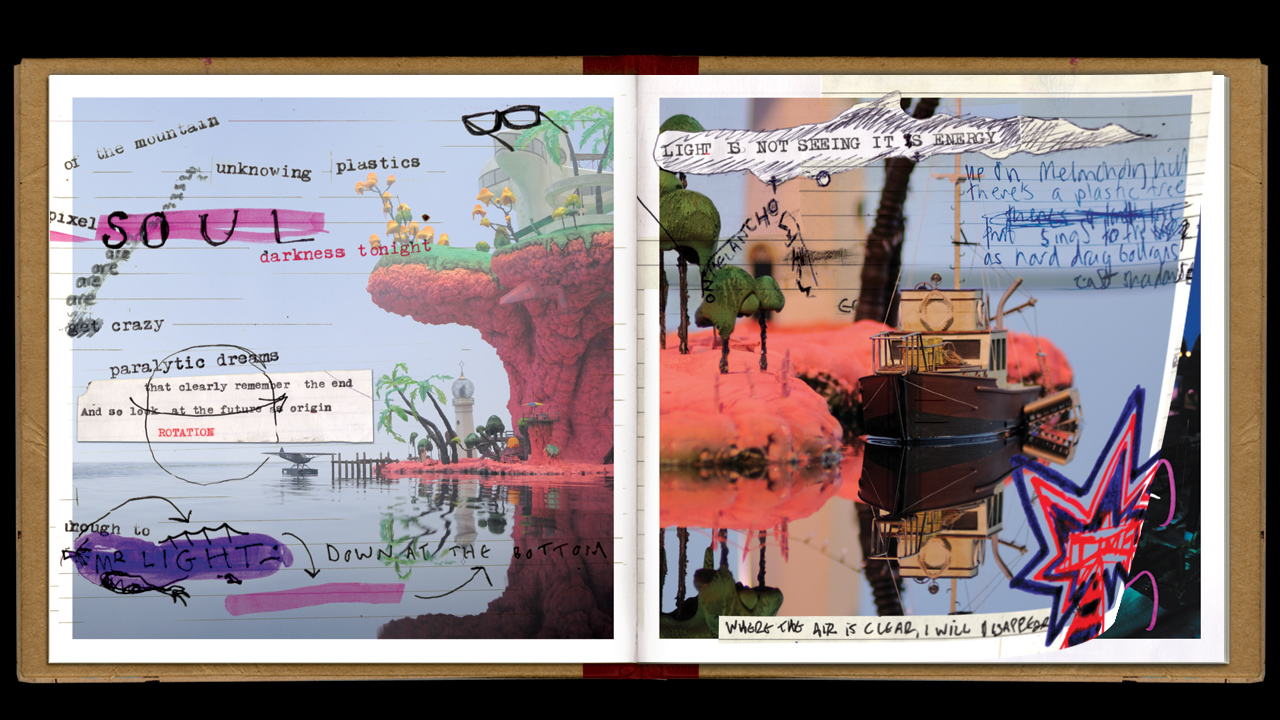 of the mountain
unknowing plastics
pixel SOUL
darkness tonight
are
are
are
are
get crazy
paralytic dreams
that clearly remember the end
And so look at the future as origin
ROTATION
rough to
MR LIGHT:
DOWN AT THE BOTTOM
LIGHT IS NOT SEEING IT IS ENERGY
up on Melancholy hill
there's a plastic tree
as hard drug
cast shadows
ON MELANCHO
WHERE THE AIR IS CLEAR, I WILL DISAPPEAR